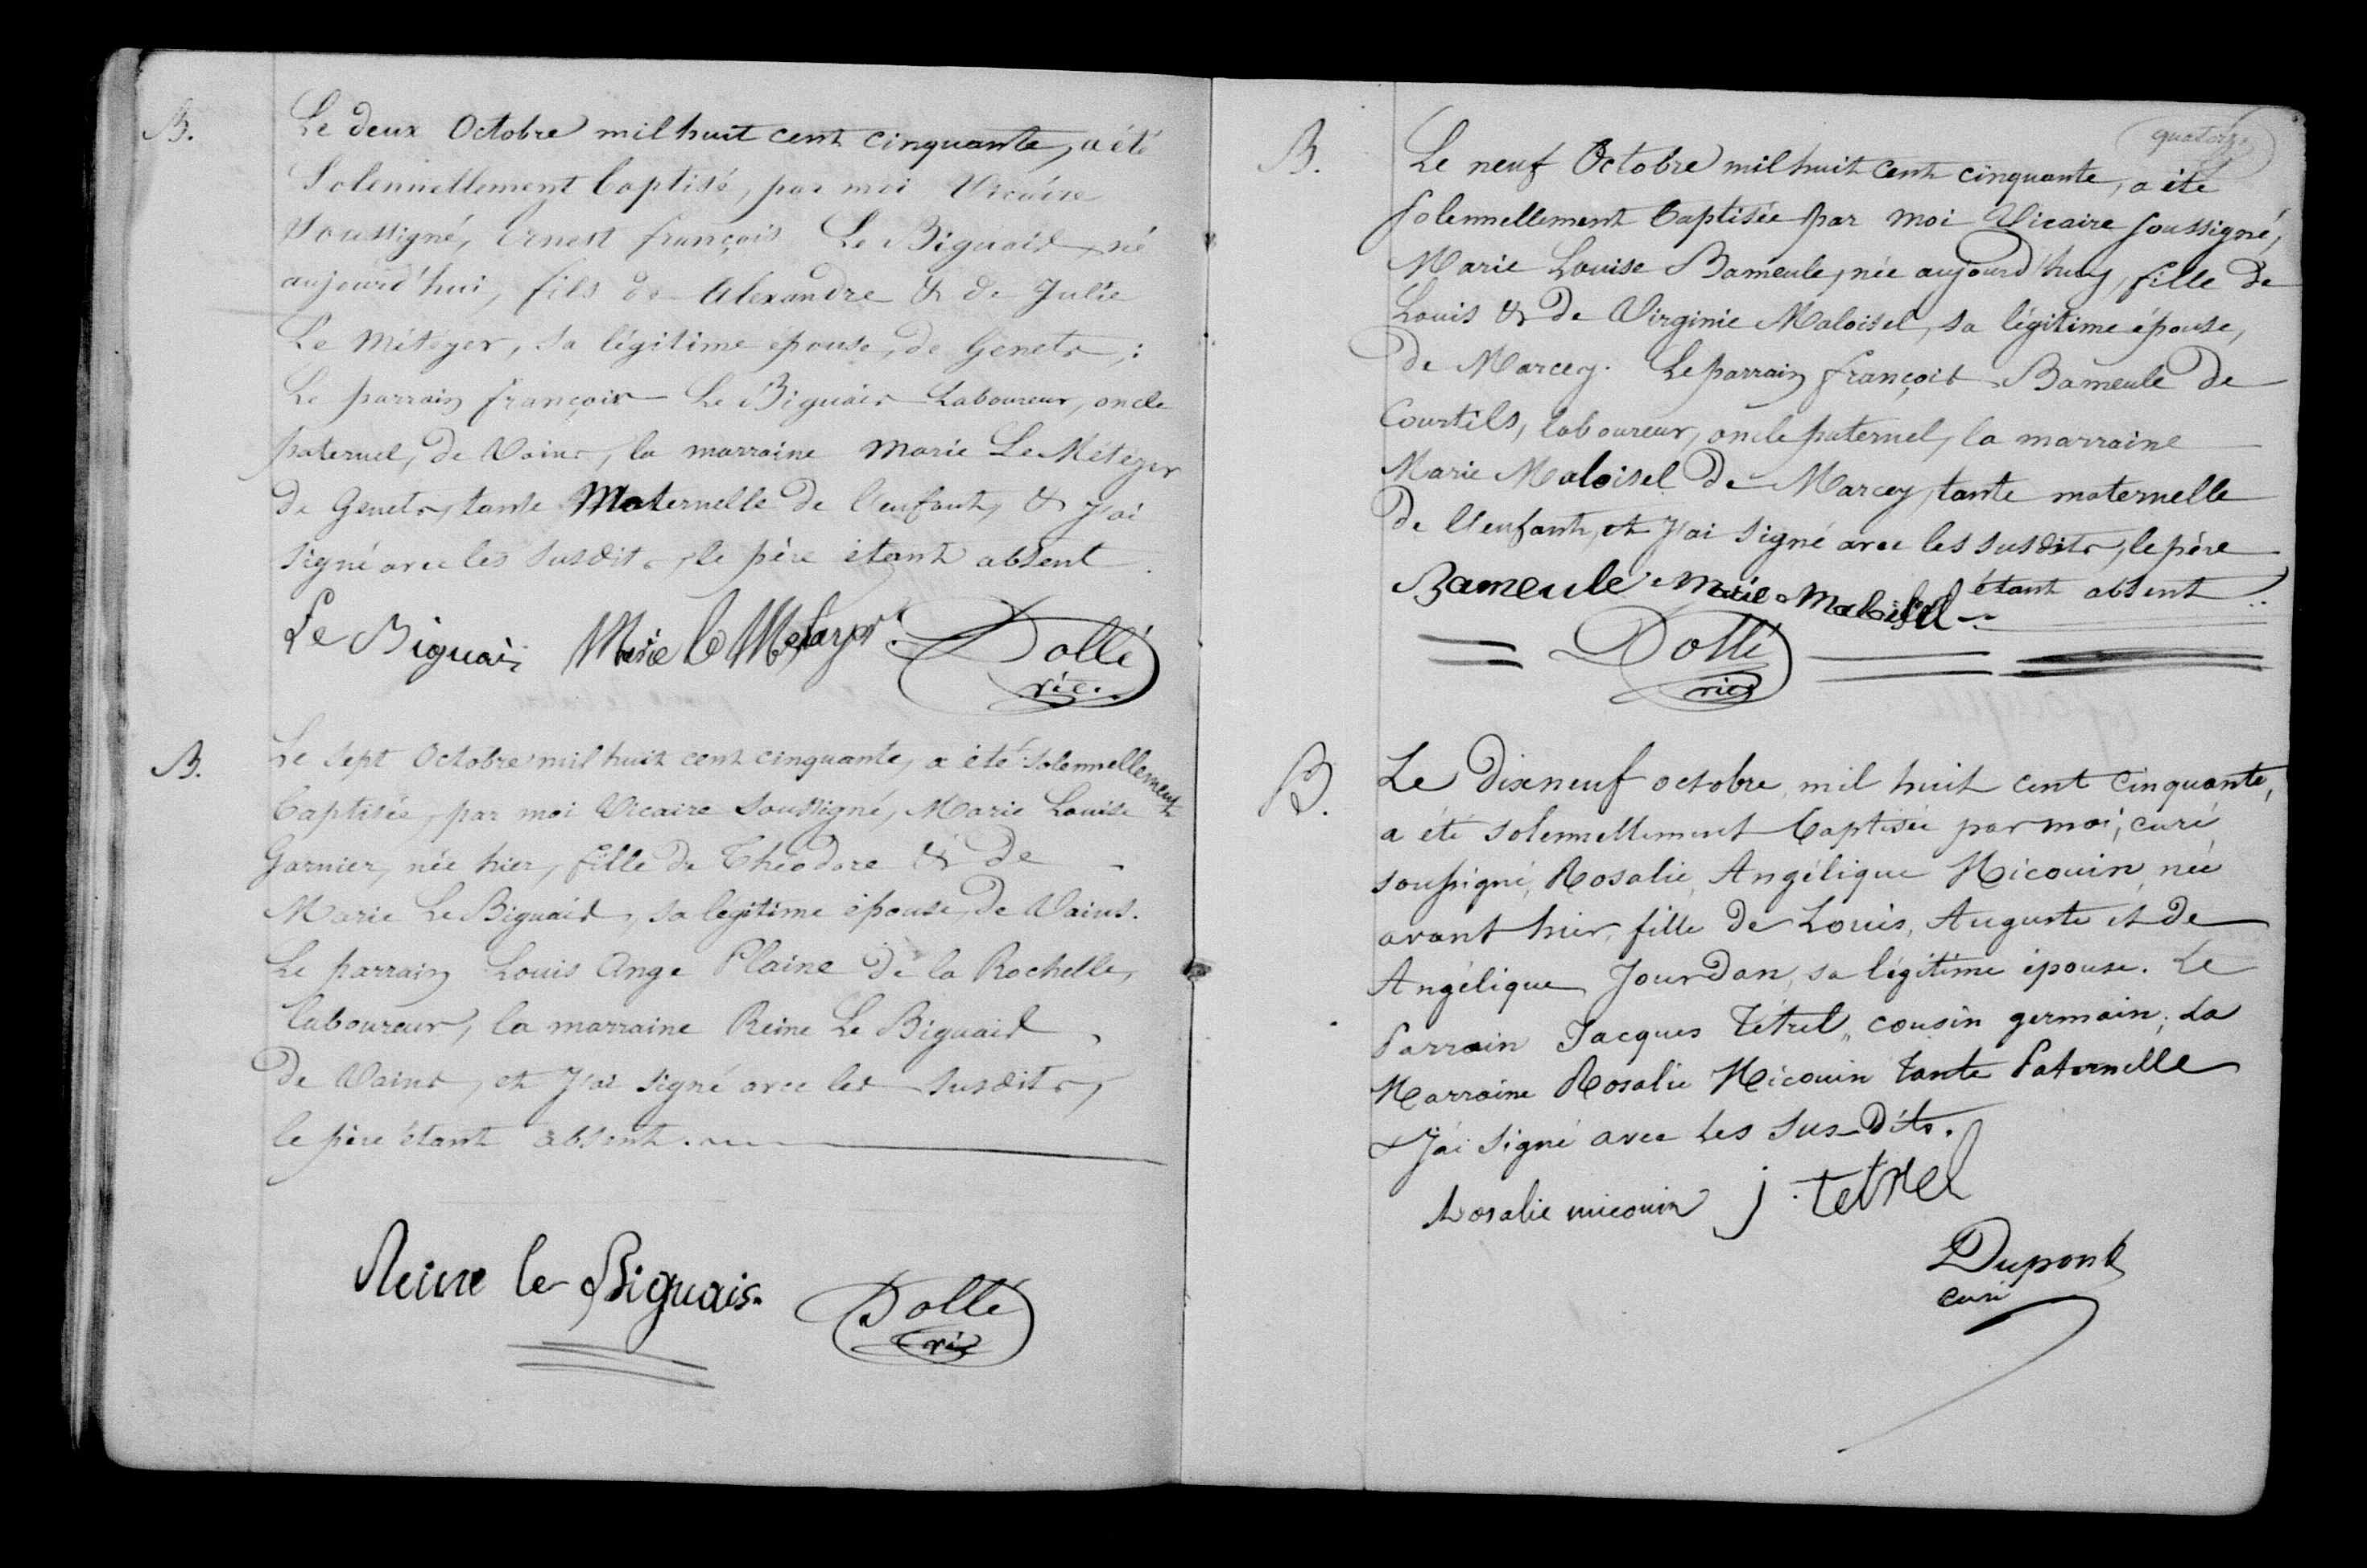 B.
Le deux Octobre mil huit cent cinquante, a été
Solennellement baptisé, par moi Vicaire
Soussigné, Ernest françois Le Biguais né
aujourd'hui, fils de Alexandre & de Julie
Le Métayer, sa légitime épouse, de Genets;
Le parrain françois Le Biguais Laboureur, oncle
paternel, de Vains, la marraine Marie Le Météyer
de Genets, tante Maternelle de l'enfant, & j'ai
signé avec les susdits, le père étant absent.
Le Biguais Marie le Metayer Dollé
vic.
B.
Le sept Octobre mil huit cent cinquante, a été solennellement
baptisée, par moi Vicaire soussigné, Marie Louise
Garnier, née hier, fille de Théodore & de
Marie Le Biguais, sa légitime épouse, de Vains.
Le parrain Louis Ange Plaine de la Rochelle,
laboureur, la marraine Reine Le Biguais,
de Vains, et j'ai signé avec les susdits,
le père étant absent.
Reine le Biguais. Dollé
vic
quatorze
B.
Le neuf Octobre mil huit cent cinquante, a été
solennellement baptisée par moi Vicaire soussigné,
Marie Louise Bameule, née aujourd'huy, fille de
Louis & de Virginie Maloisel, sa légitime épouse,
de Marcey. Le parrain françois Bameule de
Courtils, laboureur, oncle paternel, la marraine
Marie Maloisel de Marcey, tante maternelle
de l'enfant, et j'ai signé avec les susdits, le père
étant absent
Bameule Marie Maloisel
Dollé
vic
B.
Le Dixneuf octobre mil huit cent cinquante,
a été solennellement baptisée par moi, curé
soussigné, Rosalie, Angélique Micouin, née
avant hier, fille de Louis, Auguste et de
Angélique Jourdan, sa légitime épouse. Le
Parrain Jacques Tétrel, cousin germain; La
Marraine Rosalie Micouin tante Paternelle
& J'ai signé avec les sus-Dits.
Rosalie micouin j. tetrel
Dupont
curé